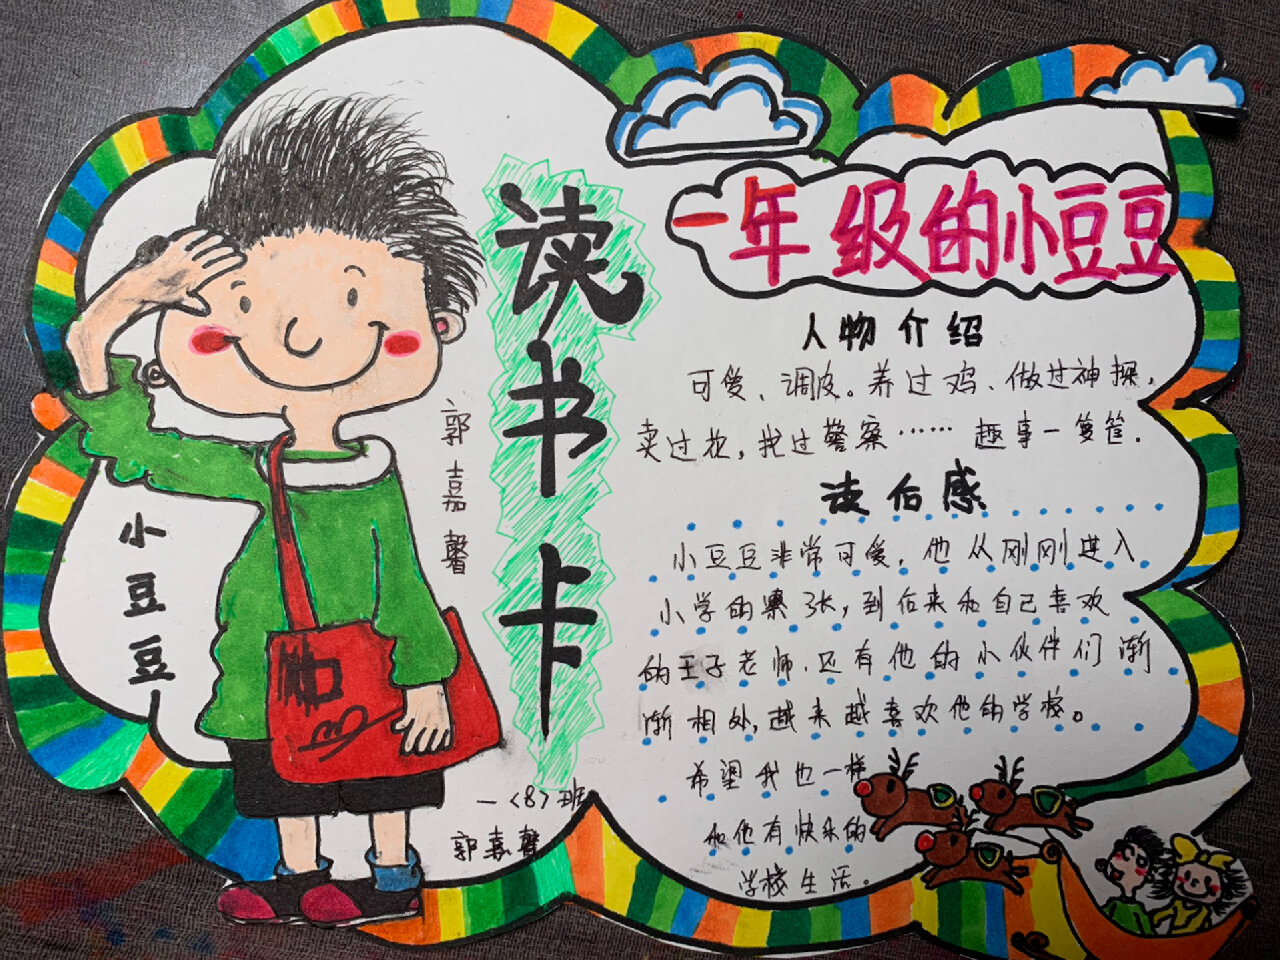 读书卡
一年级的小豆豆
人物介绍
可爱、调皮。养过鸡、做过神探,
卖过花,找过警察……趣事一箩筐.
读后感
小豆豆非常可爱,他从刚刚进入
小学的紧张,到后来和自己喜欢
的王子老师.还有他的小伙伴们渐
渐相处,越来越喜欢他的学校。
希望我也一样
和他有快乐的
学校生活.
郭嘉馨
小豆豆
一〈8〉班
郭嘉馨